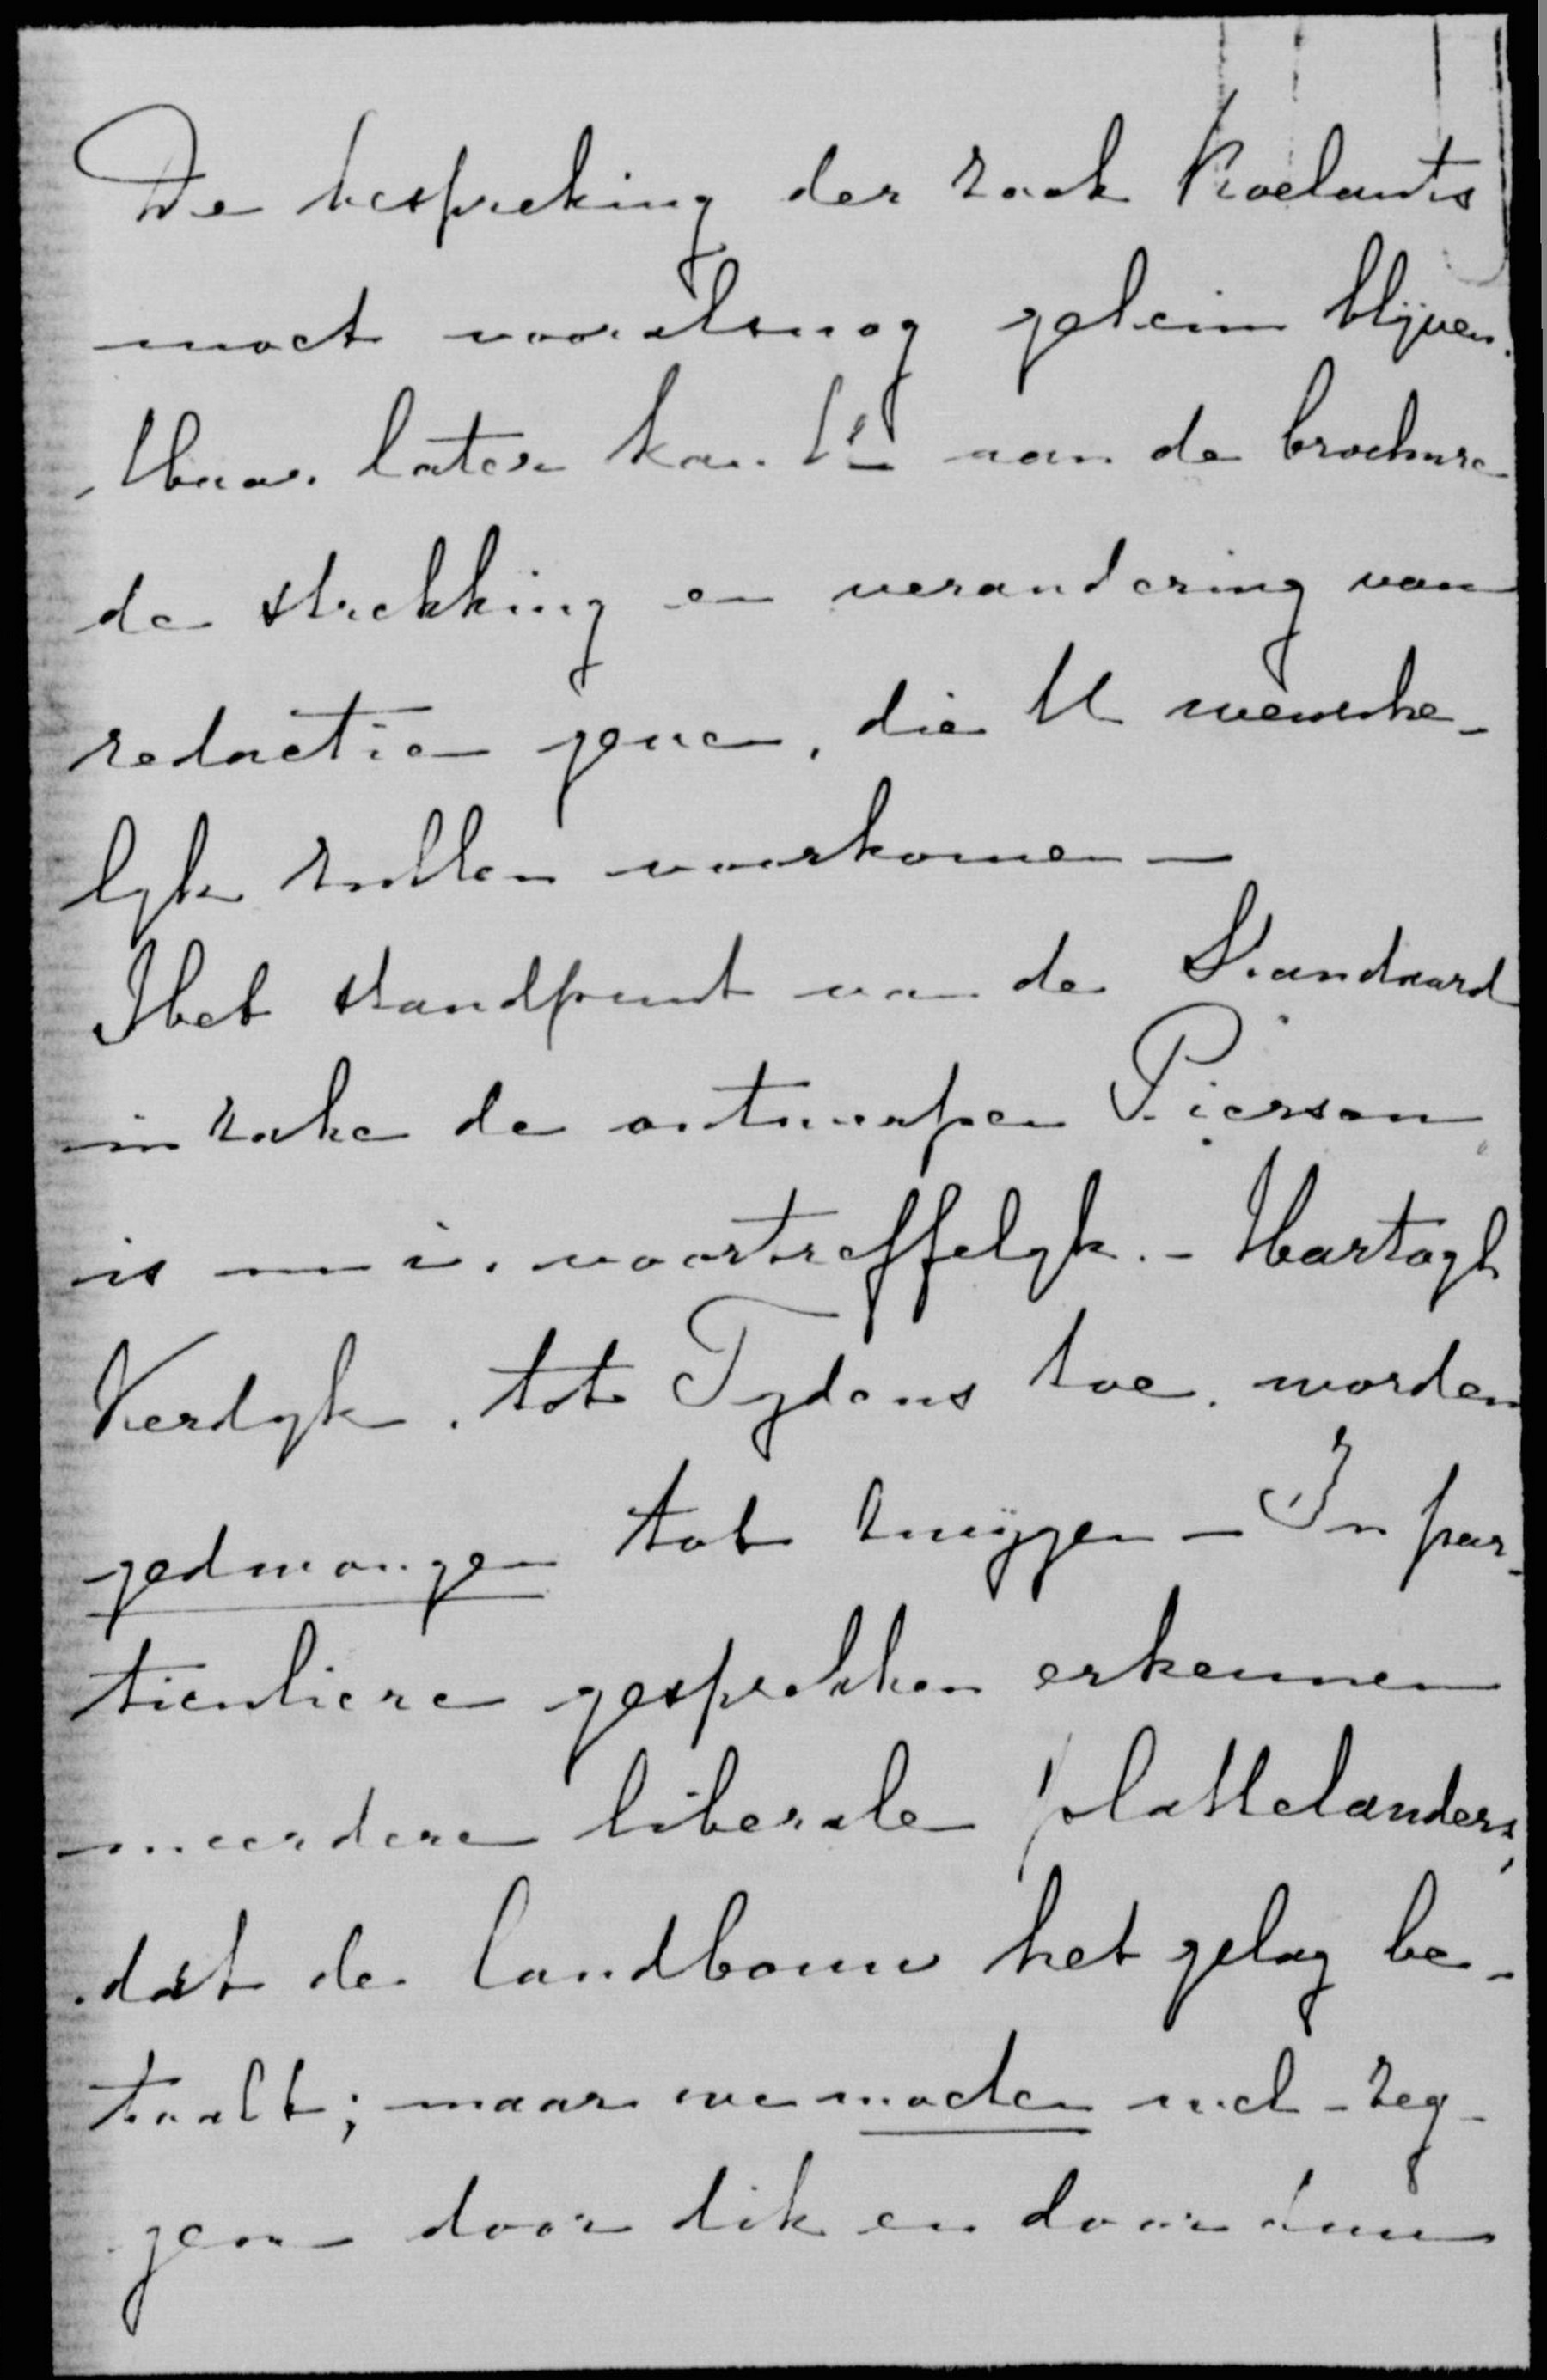 De bespreking der zaak Roelants
moet vooralsnog geheim blijven.
Maar later kan U aan de brochure
de strekking en verandering van
redactie geven, die U wensche-
lyk zullen voorkomen –
Het standpunt van de Standaard
in zake de ontwerpen Pierson
is m. i. voortreffelyk. – Hartogh
Kerdyk, tot Tydens toe, worden
gedwongen tot zwijgen – In par-
ticuliere gesprekken erkennen
meerdere liberale plattelanders,
dat de landbouw het gelag be-
taalt; maar we moeten met – zeg-
gen – door dik en door dun